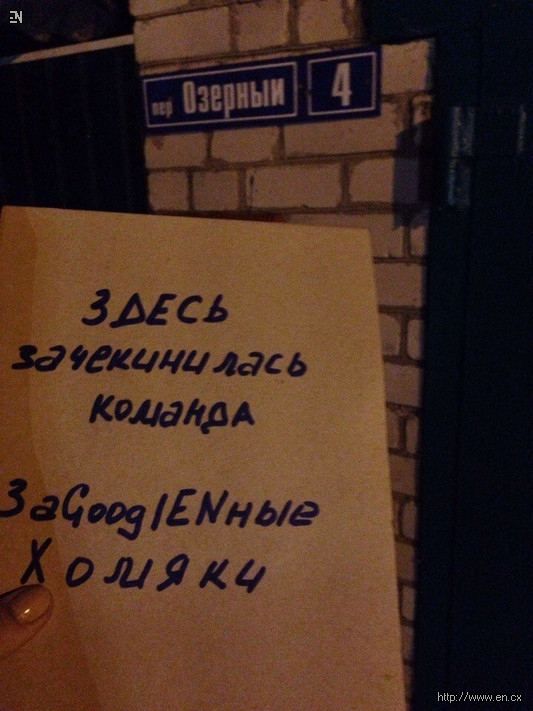 EN
пер Озерный 4
ЗДЕСЬ
зачекинилась
командА
ЗаGooglENные
Холяки
http://www.en.cx